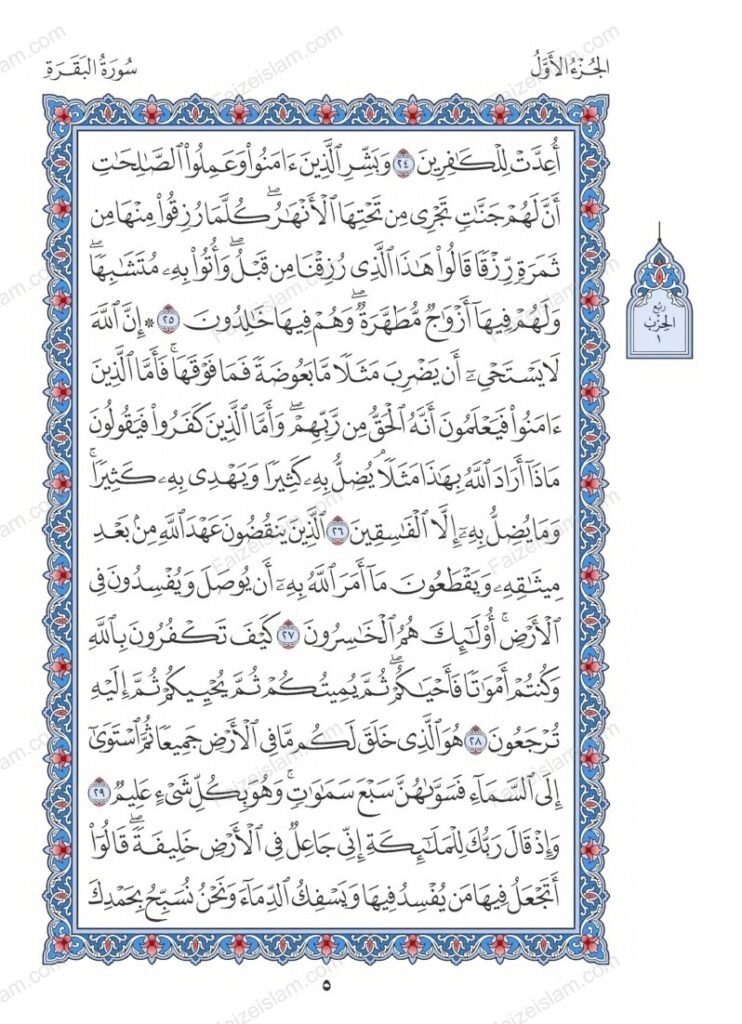 الجُزْءُ الأَوَّلُ
سُورَةُ البَقَرَةِ
أُعِدَّتْ لِلْكَٰفِرِينَ ٢٤ وَبَشِّرِ ٱلَّذِينَ ءَامَنُوا۟ وَعَمِلُوا۟ ٱلصَّٰلِحَٰتِ
أَنَّ لَهُمْ جَنَّٰتٍ تَجْرِى مِن تَحْتِهَا ٱلْأَنْهَٰرُ ۖ كُلَّمَا رُزِقُوا۟ مِنْهَا مِن
ثَمَرَةٍ رِّزْقًا قَالُوا۟ هَٰذَا ٱلَّذِى رُزِقْنَا مِن قَبْلُ ۖ وَأُتُوا۟ بِهِۦ مُتَشَٰبِهًا ۖ
وَلَهُمْ فِيهَآ أَزْوَٰجٌ مُّطَهَّرَةٌ ۖ وَهُمْ فِيهَا خَٰلِدُونَ ٢٥ ۞ إِنَّ ٱللَّهَ
لَا يَسْتَحْىِۦٓ أَن يَضْرِبَ مَثَلًا مَّا بَعُوضَةً فَمَا فَوْقَهَا ۚ فَأَمَّا ٱلَّذِينَ
ءَامَنُوا۟ فَيَعْلَمُونَ أَنَّهُ ٱلْحَقُّ مِن رَّبِّهِمْ ۖ وَأَمَّا ٱلَّذِينَ كَفَرُوا۟ فَيَقُولُونَ
مَاذَآ أَرَادَ ٱللَّهُ بِهَٰذَا مَثَلًا ۘ يُضِلُّ بِهِۦ كَثِيرًا وَيَهْدِى بِهِۦ كَثِيرًا ۚ
وَمَا يُضِلُّ بِهِۦٓ إِلَّا ٱلْفَٰسِقِينَ ٢٦ ٱلَّذِينَ يَنقُضُونَ عَهْدَ ٱللَّهِ مِنۢ بَعْدِ
مِيثَٰقِهِۦ وَيَقْطَعُونَ مَآ أَمَرَ ٱللَّهُ بِهِۦٓ أَن يُوصَلَ وَيُفْسِدُونَ فِى
ٱلْأَرْضِ ۚ أُو۟لَٰٓئِكَ هُمُ ٱلْخَٰسِرُونَ ٢٧ كَيْفَ تَكْفُرُونَ بِٱللَّهِ
وَكُنتُمْ أَمْوَٰتًا فَأَحْيَٰكُمْ ۖ ثُمَّ يُمِيتُكُمْ ثُمَّ يُحْيِيكُمْ ثُمَّ إِلَيْهِ
تُرْجَعُونَ ٢٨ هُوَ ٱلَّذِى خَلَقَ لَكُم مَّا فِى ٱلْأَرْضِ جَمِيعًا ثُمَّ ٱسْتَوَىٰٓ
إِلَى ٱلسَّمَآءِ فَسَوَّىٰهُنَّ سَبْعَ سَمَٰوَٰتٍ ۚ وَهُوَ بِكُلِّ شَىْءٍ عَلِيمٌ ٢٩
وَإِذْ قَالَ رَبُّكَ لِلْمَلَٰٓئِكَةِ إِنِّى جَاعِلٌ فِى ٱلْأَرْضِ خَلِيفَةً ۖ قَالُوٓا۟
أَتَجْعَلُ فِيهَا مَن يُفْسِدُ فِيهَا وَيَسْفِكُ ٱلدِّمَآءَ وَنَحْنُ نُسَبِّحُ بِحَمْدِكَ
رُبع
الحِزْب
١
٥
Faizeislam.com